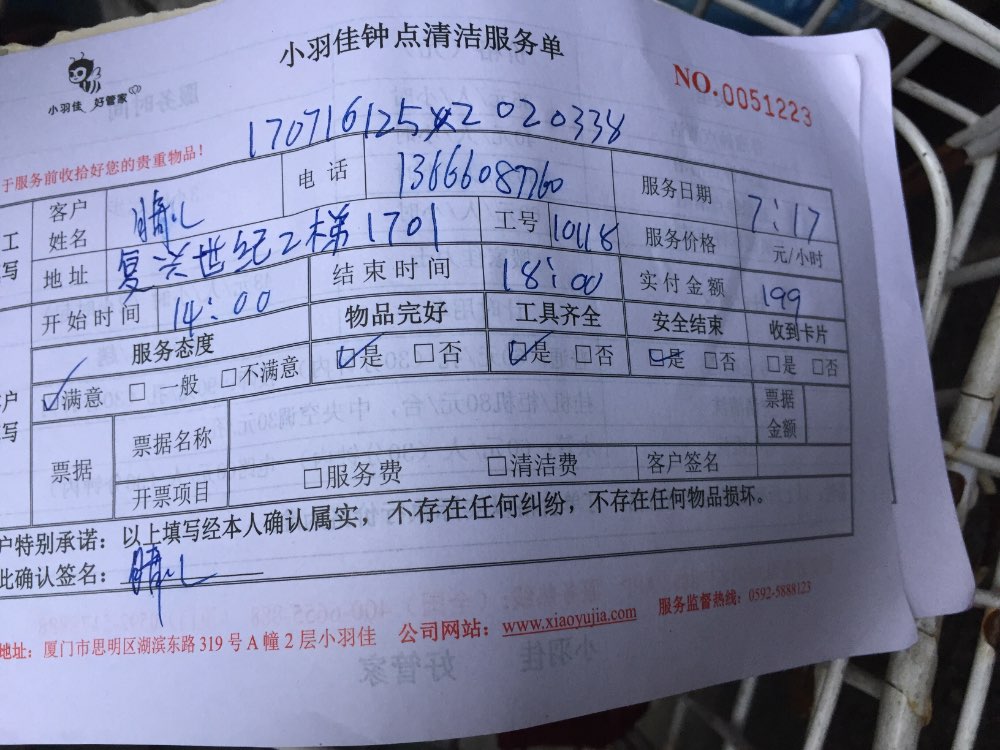 小羽佳 好管家
小羽佳钟点清洁服务单
NO.0051223
于服务前收拾好您的贵重物品!
客户姓名 电话 13666087760 服务日期 7:17
地址 复兴世纪2梯1701 工号 10118 服务价格 元/小时
开始时间 14:00 结束时间 18:00 实付金额 199
服务态度 物品完好 工具齐全 安全结束 收到卡片
☑满意 □一般 □不满意 ☑是 □否 ☑是 □否 ☑是 □否 □是 □否
票据 票据名称 票据金额
开票项目 □服务费 □清洁费 客户签名
户特别承诺:以上填写经本人确认属实,不存在任何纠纷,不存在任何物品损坏。
此确认签名:
地址:厦门市思明区湖滨东路319号A幢2层小羽佳 公司网站:www.xiaoyujia.com 服务监督热线:0592-5888123